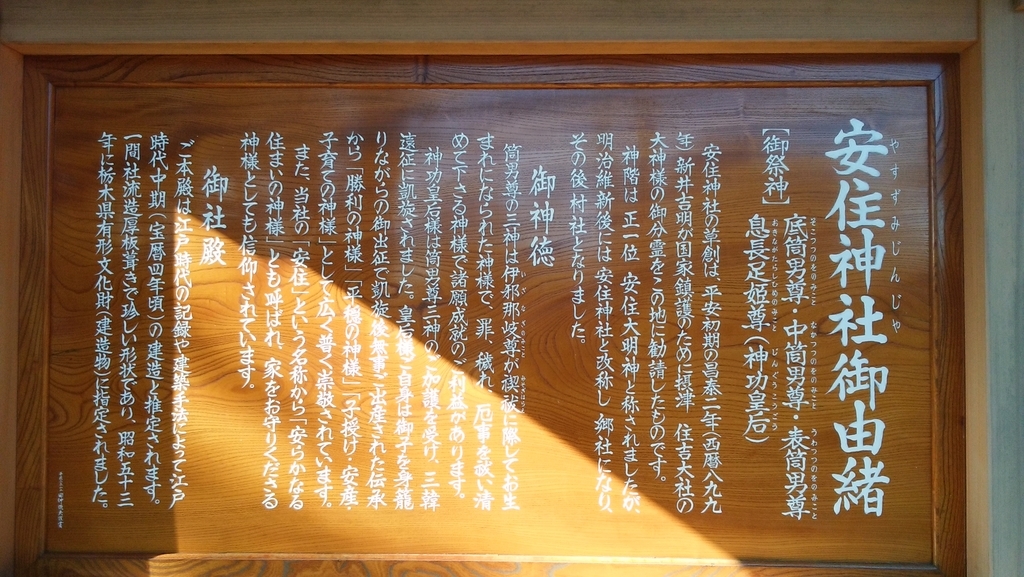 安住神社御由緒
やすずみじんじゃ
【御祭神】
底筒男尊・中筒男尊・表筒男尊
そこつつのをのみこと なかつつのをのみこと うわつつのをのみこと
息長足姫尊(神功皇后)
おきながたらしひめのみこと じんぐうこうごう
安住神社の草創は、平安初期の昌泰二年(西暦八九九
年)新井吉明が国家鎮護のために摂津 住吉大社の
大神様の御分霊をこの地に勧請したものです。
神階は正一位 安住大明神と称されましたが、
明治維新後には安住神社と改称し 郷社になり、
その後村社となりました。
御神徳
筒男尊の三神は伊邪那岐尊が禊祓に際してお生
まれになられた神様で、罪、穢れ、厄事を祓い清
めて下さる神様で諸願成就のご利益があります。
神功皇后様は筒男尊三神のご加護を受け、三韓
遠征に凱旋されました。皇后様ご自身は御子を身籠
りながらの御出征で凱旋後無事ご出産された伝承
から「勝利の神様」「子種の神様」「子授け・安産・
子育ての神様」として広く普く崇敬されています。
また、当社の「安住」という名称から「安らかなる
住まいの神様」とも呼ばれ、家をお守りくださる
神様としても信仰されています。
御社殿
ご本殿は江戸時代の記録や建築手法によって江戸
時代中期(宝暦四年頃)の建造と推定されます。
一間社流造厚板葺きで珍しい形状であり、昭和五十三
年に栃木県有形文化財(建造物)に指定されました。